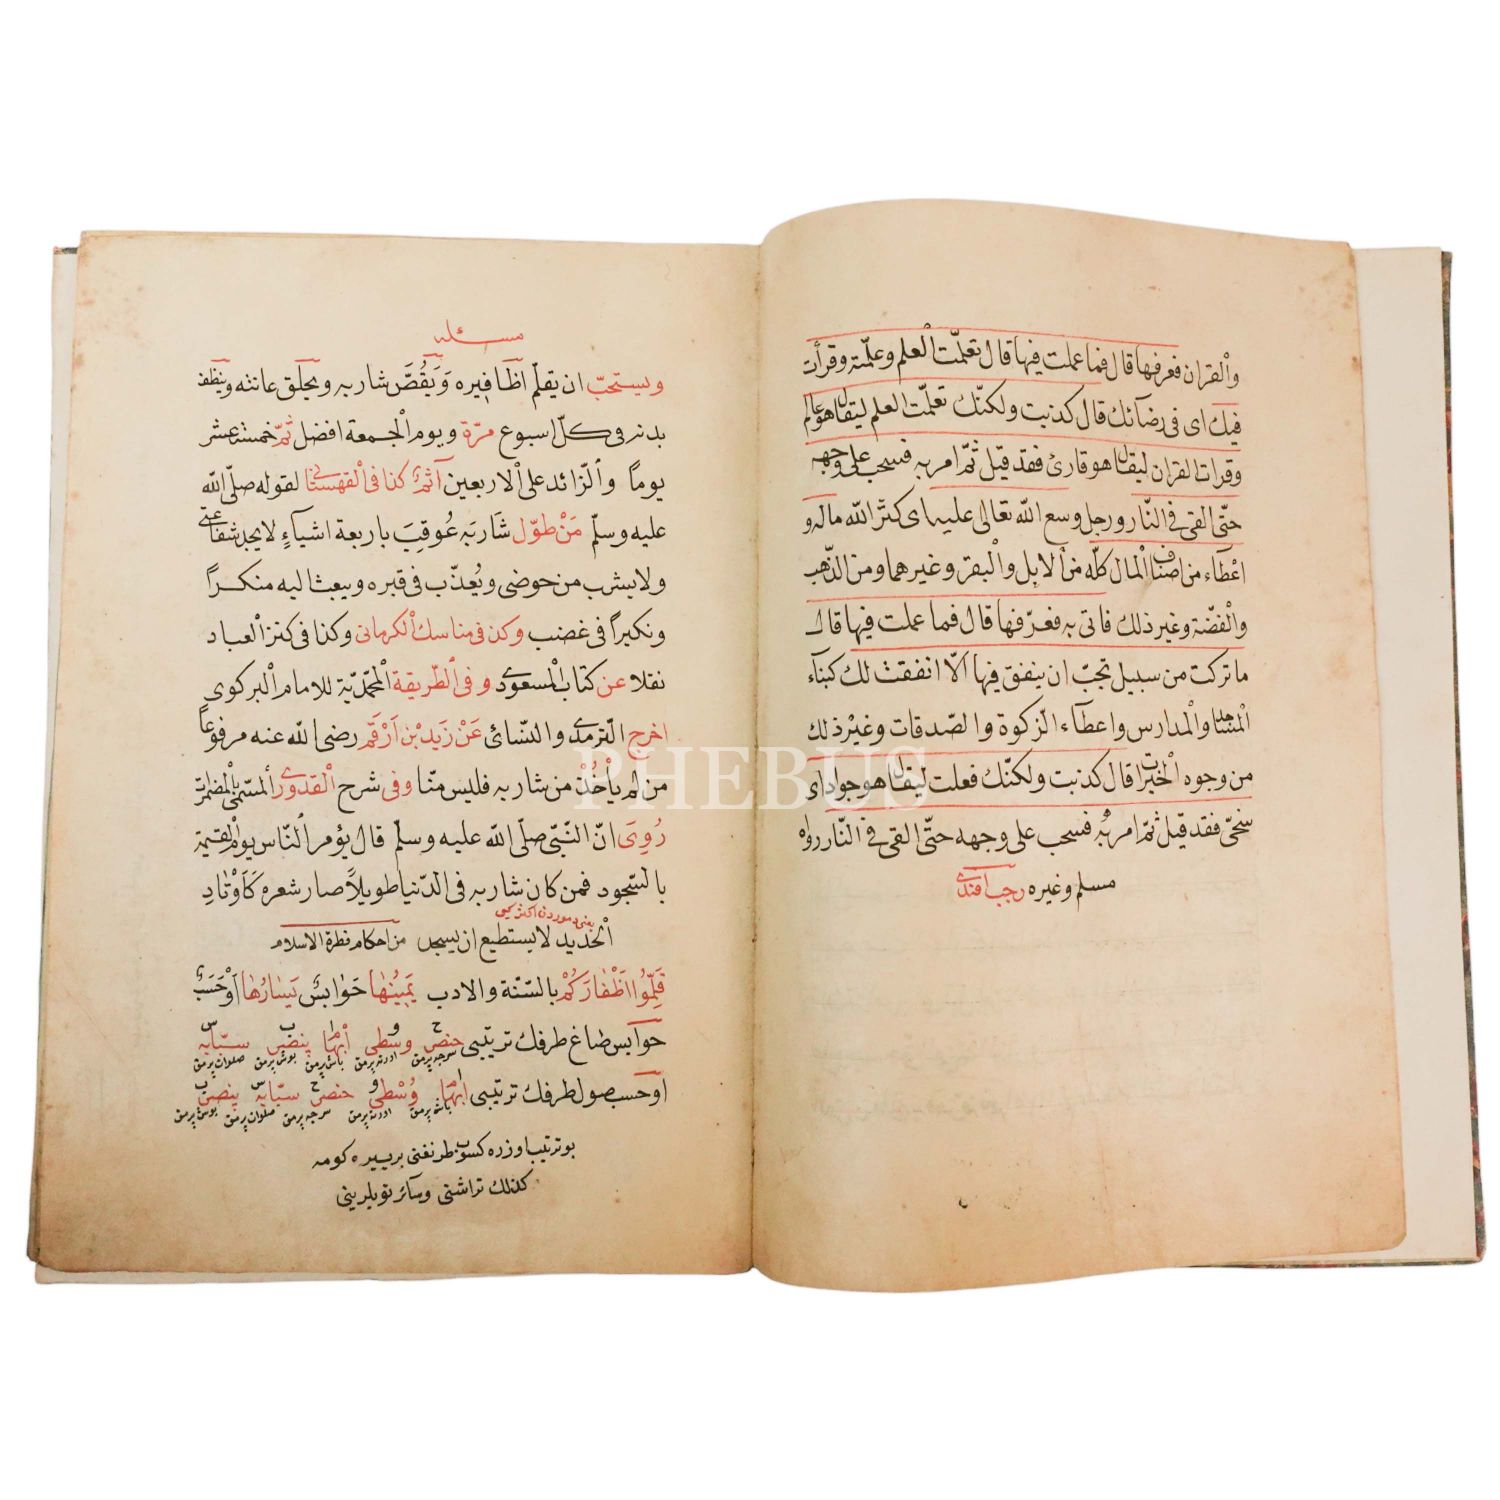 والقران فعرفها قال فما عملت فيها قال تعلمت العلم وعلمته وقرأت
فيك اى فى رضائك قال كذبت ولكنّك تعلّمت العلم ليقال هو عالم
وقرات القران ليقال هو قارئ فقد قيل ثمّ امر به فسحب على وجهه
حتّى القى فى النّار ورجل وسع الله تعالى عليه اى كثر الله ماله و
اعطاه من اصناف المال كلّه من الابل والبقر وغيرهما ومن الذّهب
والفضّة وغير ذلك فاتى به فعرّفها قال فما عملت فيها قال
ما تركت من سبيل تحبّ ان ينفق فيها الّا انفقت لك كبناء
المشاهد والمدارس واعطاء الزّكوة والصّدقات وغير ذلك
من وجوه الخيرات قال كذبت ولكنّك فعلت ليقال هو جواد اى
سخىّ فقد قيل ثمّ امر به فسحب على وجهه حتّى القى فى النّار رواه
مسلم وغيره رجب افندى
مسئله
ويستحبّ ان يقلّم اظافيره وَيَقُصَّ شاربه ويحلق عانته وينظف
بدنه فى كلّ اسبوع مرّة ويوم الجمعة افضل ثمّ خمسة عشر
يوماً والزّائد على الاربعين آثم كذا فى القهستانى لقوله صلّى الله
عليه وسلّم مَنْ طوّل شَاربَه عُوقِبَ باربعة اشياءٍ لا يجد شفاعتى
ولا يشرب من حوضى ويُعذّب فى قبره ويبعث اليه منكراً
ونكيراً فى غضب وكذ فى مناسك الكرمانى وكذا فى كنز العباد
نقلا عن كتاب المسعودى وفى الطّريقة المحمّديّة للامام البركوى
اخرج التّرمذى والنّسائ عَنْ زَيد بْن اَرْقَم رضى الله عنه مرفوعاً
من لم يأخُذْ من شاربه فليس منّا وفى شرح القدورى المسمّى بالمضمرات
رُوِىَ انّ النّبىّ صلّى الله عليه وسلّم قال يؤمر النّاس يوم القيمة
بالسّجود فمن كان شاربه فى الدّنيا طويلاً صار شعره كَاَوْتَادِ
الحديد لا يستطيع ان يسجد من احكام فطرة الاسلام
قَلِّمُوا اَظْفَارَكُمْ بالسّنّة والادب يَمِينُهَا خَوَابِسُ يَسَارُهَا اَوْخَسَبُ
خوابس صاغ طرفك ترتيبى خنصر وُسْطى اِبْهَام بنصر سبّابه
ح و ا ب س
سرجه پرمق اورته پرمق باش پرمق يوزك پرمق صلوان پرمق
اوخسب صول طرفك ترتيبى ابهام وُسْطى خنصر سبّابه بنصر
ا و ح س ب
باش پرمق اورته پرمق سرجه پرمق صلوان پرمق
بو ترتيب اوزره كسوب طرنغنى بريره كومه
كذلك تراشنى وسآئر تويلرينى
PHEBUS